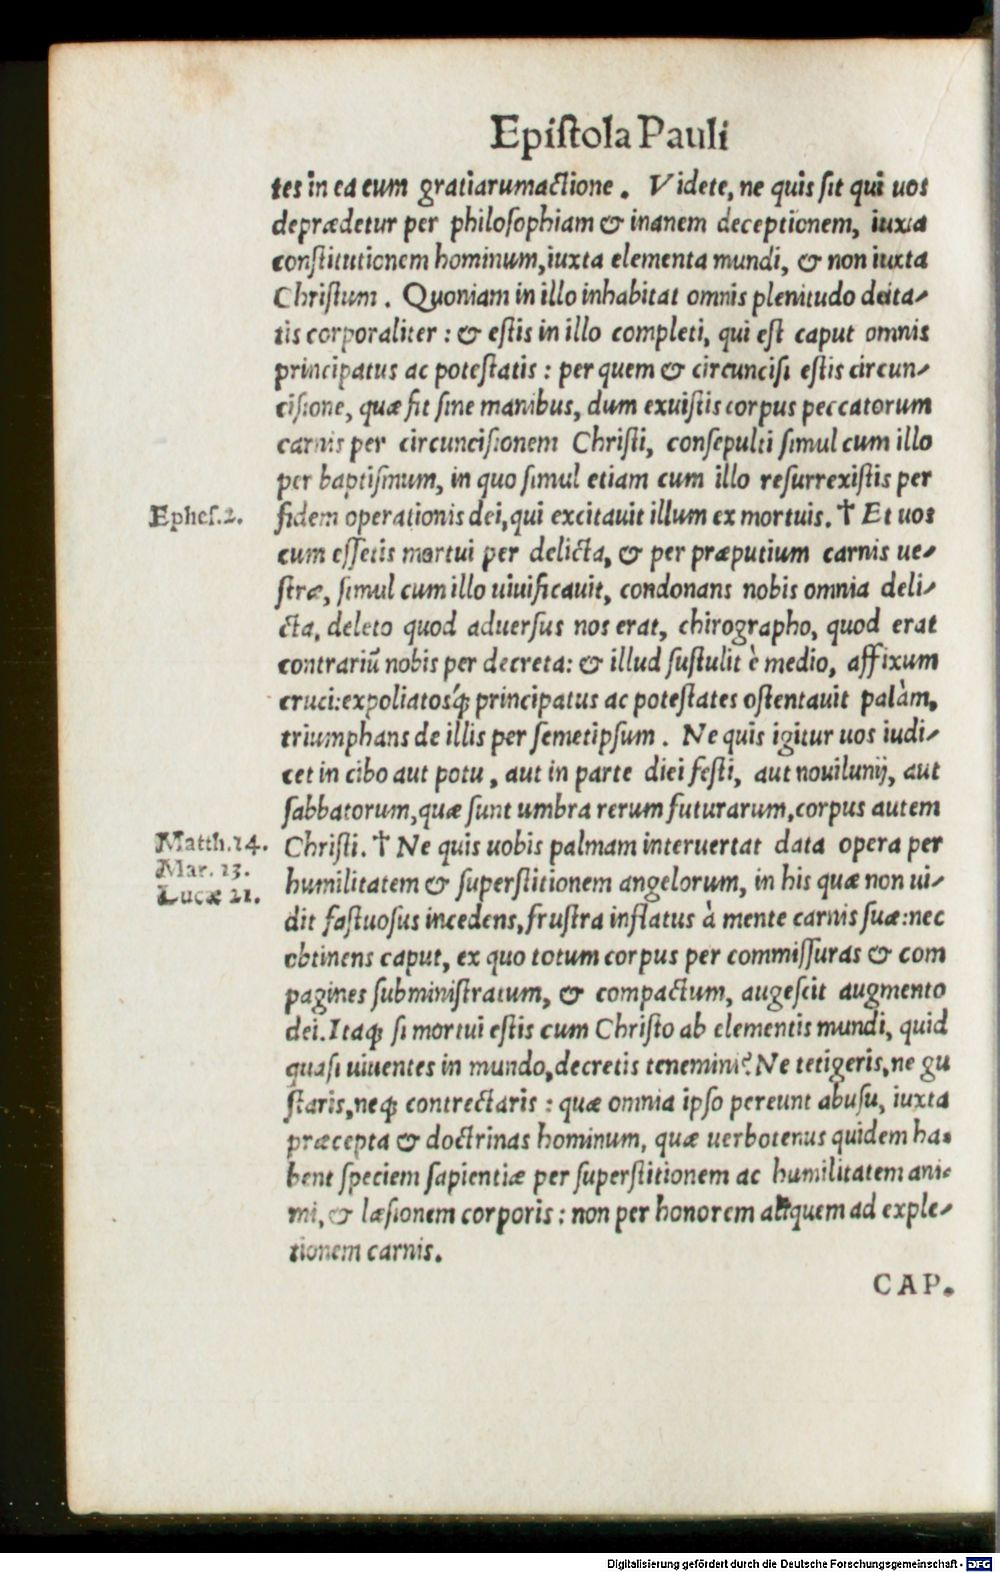 Epiſtola Pauli
tes in ea cum gratiarumactione. Videte, ne quis ſit qui uos
deprædetur per philoſophiam & inanem deceptionem, iuxta
conſtitutionem hominum, iuxta elementa mundi, & non iuxta
Chriſtum. Quoniam in illo inhabitat omnis plenitudo deita-
tis corporaliter: & eſtis in illo completi, qui eſt caput omnis
principatus ac poteſtatis: per quem & circunciſi eſtis circun-
ciſione, quæ fit ſine manibus, dum exuiſtis corpus peccatorum
carnis per circunciſionem Chriſti, conſepulti ſimul cum illo
per baptiſmum, in quo ſimul etiam cum illo reſurrexiſtis per
Epheſ.2.
fidem operationis dei, qui excitauit illum ex mortuis. † Et uos
cum eſſetis mortui per delicta, & per præputium carnis ue-
ſtræ, ſimul cum illo uiuificauit, condonans nobis omnia deli-
cta, deleto quod aduerſus nos erat, chirographo, quod erat
contrariū nobis per decreta: & illud ſuſtulit è medio, affixum
cruci: expoliatosq́; principatus ac poteſtates oſtentauit palàm,
triumphans de illis per ſemetipſum. Ne quis igitur uos iudi-
cet in cibo aut potu, aut in parte diei feſti, aut nouilunij, aut
ſabbatorum, quæ ſunt umbra rerum futurarum, corpus autem
Matth.24.
Chriſti. † Ne quis uobis palmam interuertat data opera per
Mar. 13.
humilitatem & ſuperſtitionem angelorum, in his quæ non ui-
Lucæ 21.
dit faſtuoſus incedens, fruſtra inflatus à mente carnis ſuæ: nec
obtinens caput, ex quo totum corpus per commiſſuras & com
pagines ſubminiſtratum, & compactum, augeſcit augmento
dei. Itaq; ſi mortui eſtis cum Chriſto ab elementis mundi, quid
quaſi uiuentes in mundo, decretis tenemini? Ne tetigeris, ne gu
ſtaris, neq; contrectaris: quæ omnia ipſo pereunt abuſu, iuxta
præcepta & doctrinas hominum, quæ uerbotenus quidem ha-
bent ſpeciem ſapientiæ per ſuperſtitionem ac humilitatem ani-
mi, & læſionem corporis: non per honorem aliquem ad exple-
tionem carnis.
CAP.
Digitalisierung gefördert durch die Deutsche Forschungsgemeinschaft - DFG